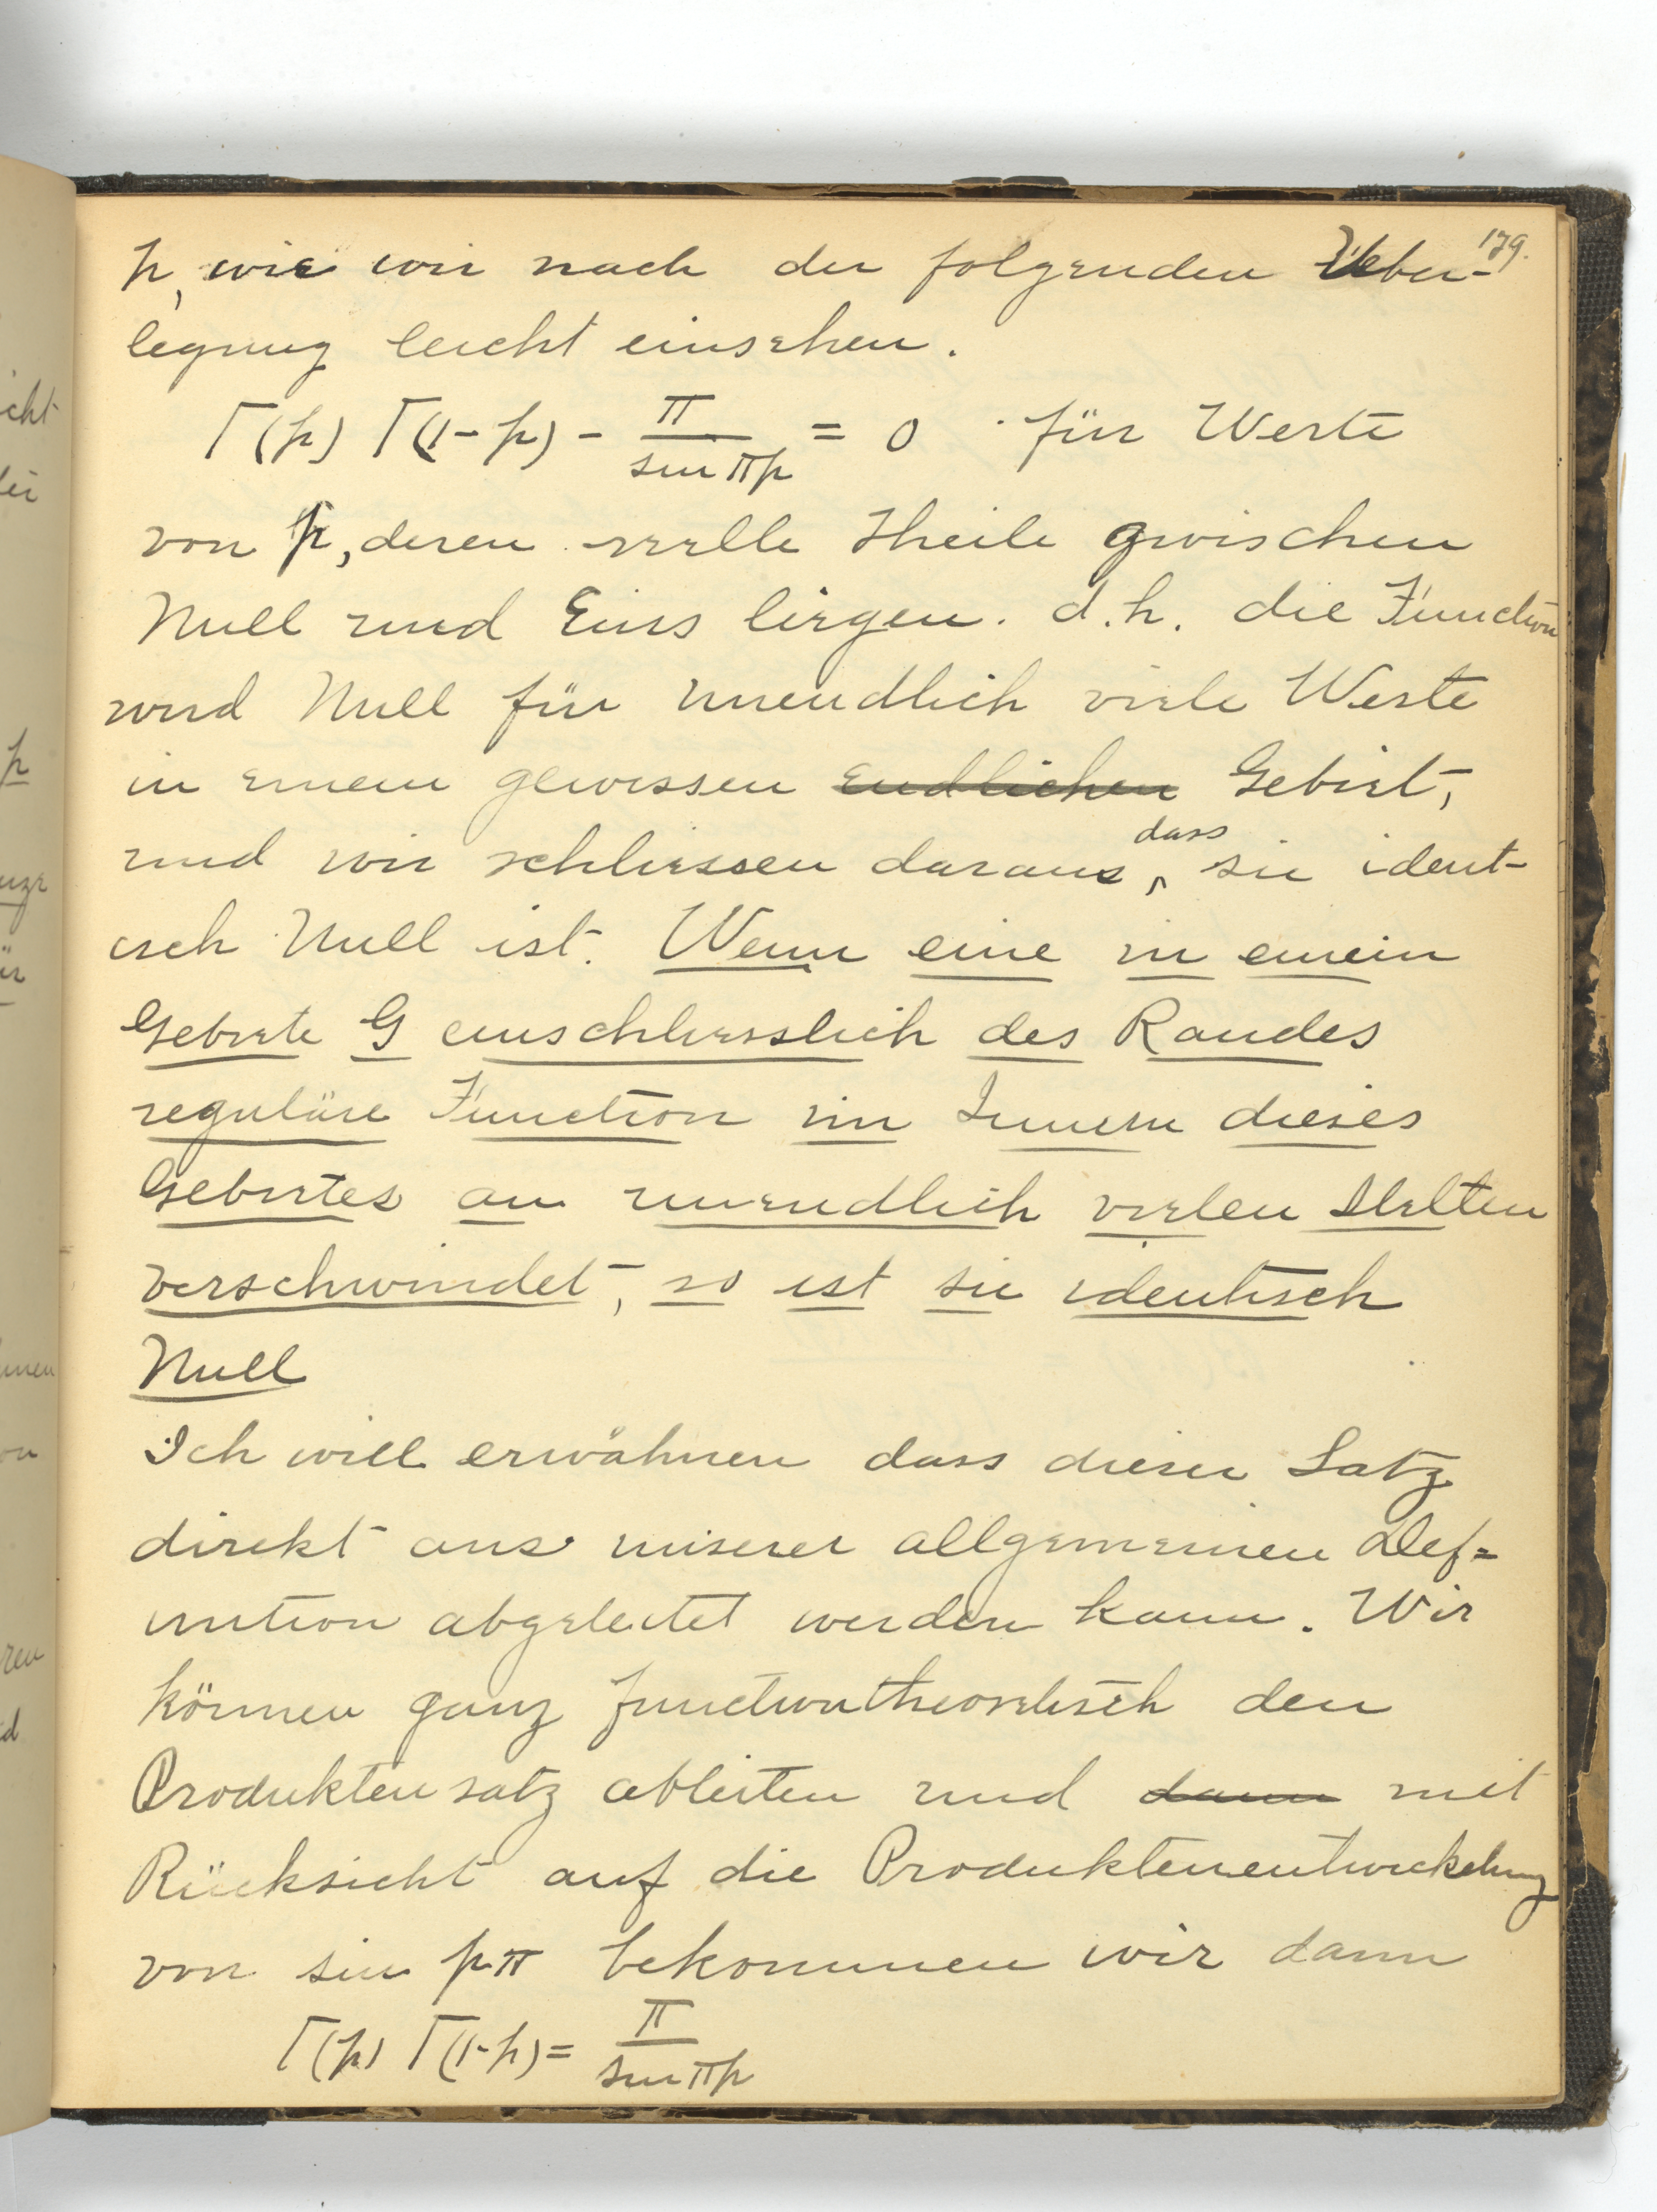 179.
p, wie wir nach der folgenden Ueber-
legung leicht einsehen.
Γ(p) Γ(1-p) - π/sin πp = 0 für Werte
von p, deren reelle Theile zwischen
Null und Eins liegen. d.h. die Function
wird Null für unendlich viele Werte
in einem gewissen endlichen Gebiet,
und wir schliessen daraus, dass sie ident-
isch Null ist. Wenn eine in einem
Gebiete G einschliesslich des Randes
reguläre Function im Innern dieses
Gebietes an unendlich vielen Stellen
verschwindet, so ist sie identisch
Null
Ich will erwähnen dass dieser Satz
direkt aus unserer allgemeinen Def=
inition abgeleitet werden kann. Wir
können ganz functiontheoretisch den
Produktensatz ableiten und dann mit
Rücksicht auf die Produktenentwickelung
von sin pπ bekommen wir dann
Γ(p) Γ(1-p) = π/sin πp
cht
ei
p
nze
ür
nnen
on
ren
d